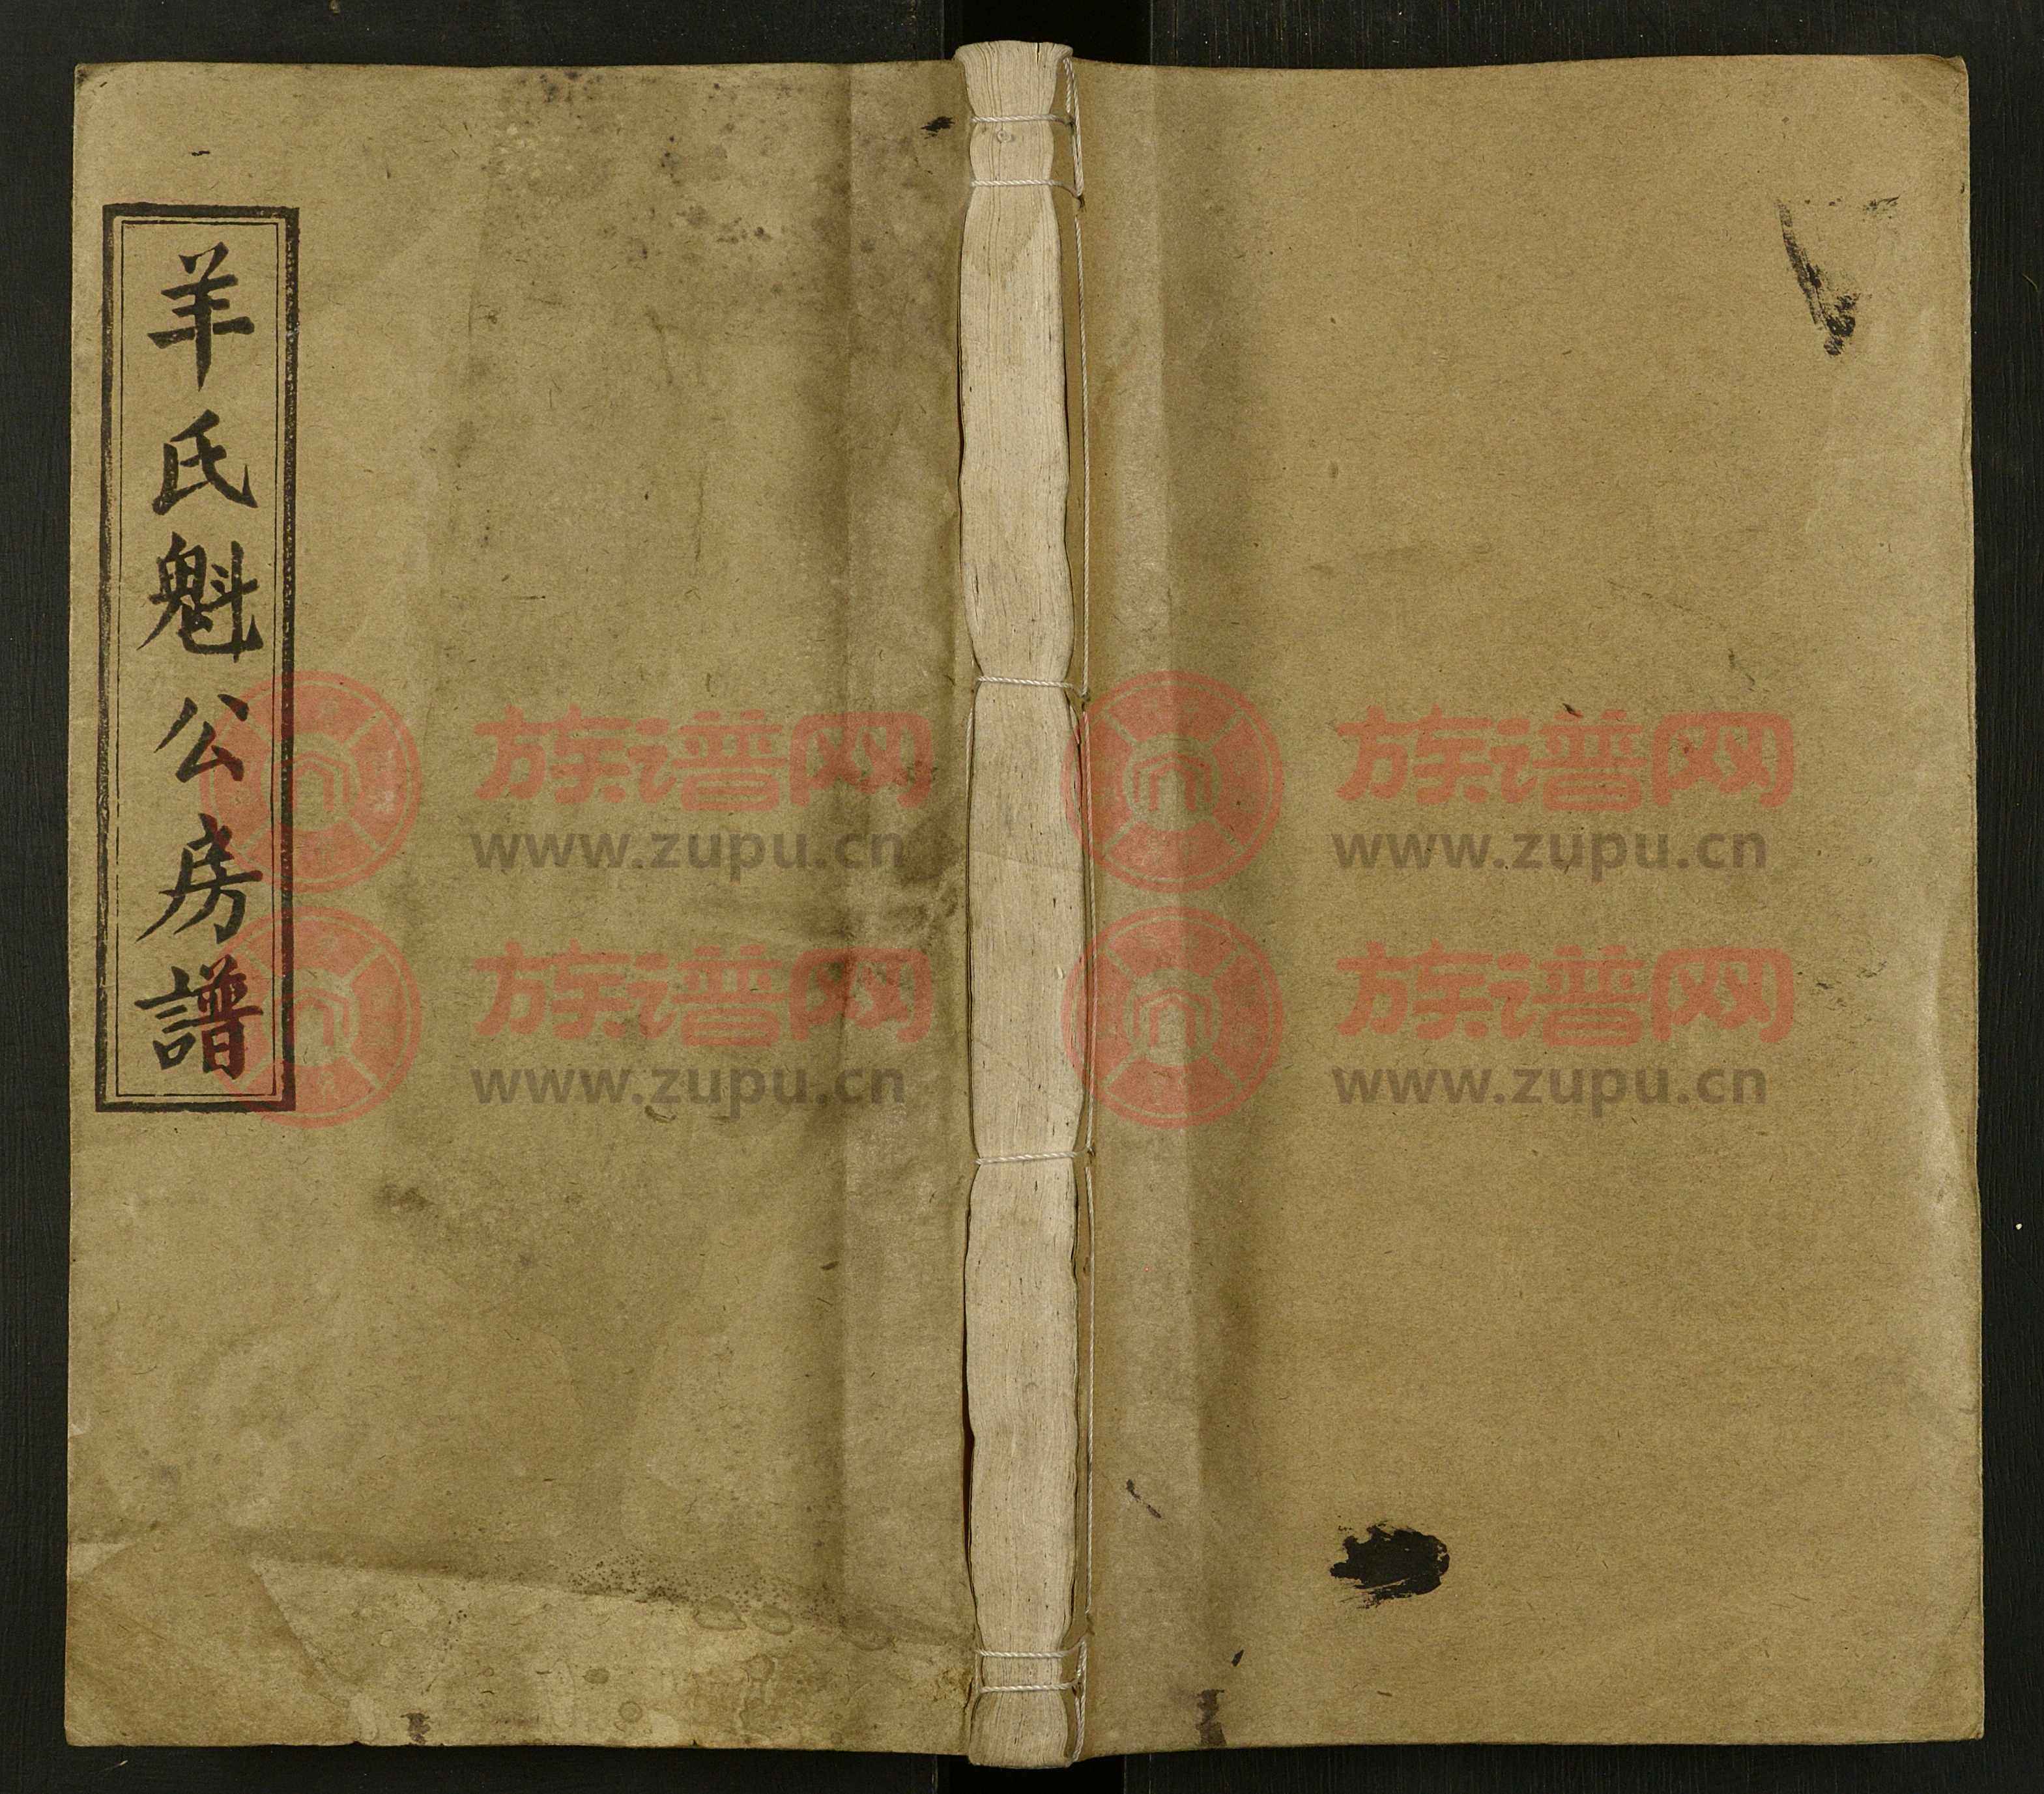 羊氏魁公房譜
族谱网
www.zupu.cn
族谱网
www.zupu.cn
族谱网
www.zupu.cn
族谱网
www.zupu.cn